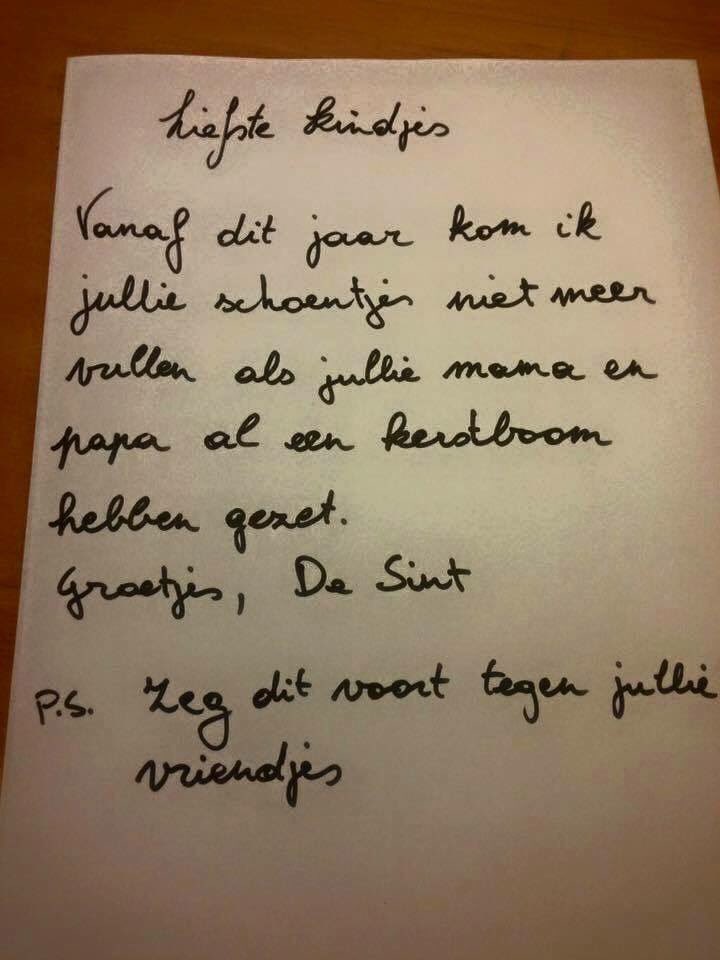 Liefste kindjes
Vanaf dit jaar kom ik
jullie schoentjes niet meer
vullen als jullie mama en
papa al een kerstboom
hebben gezet.
Groetjes, De Sint
P.S. Zeg dit voort tegen jullie
vriendjes